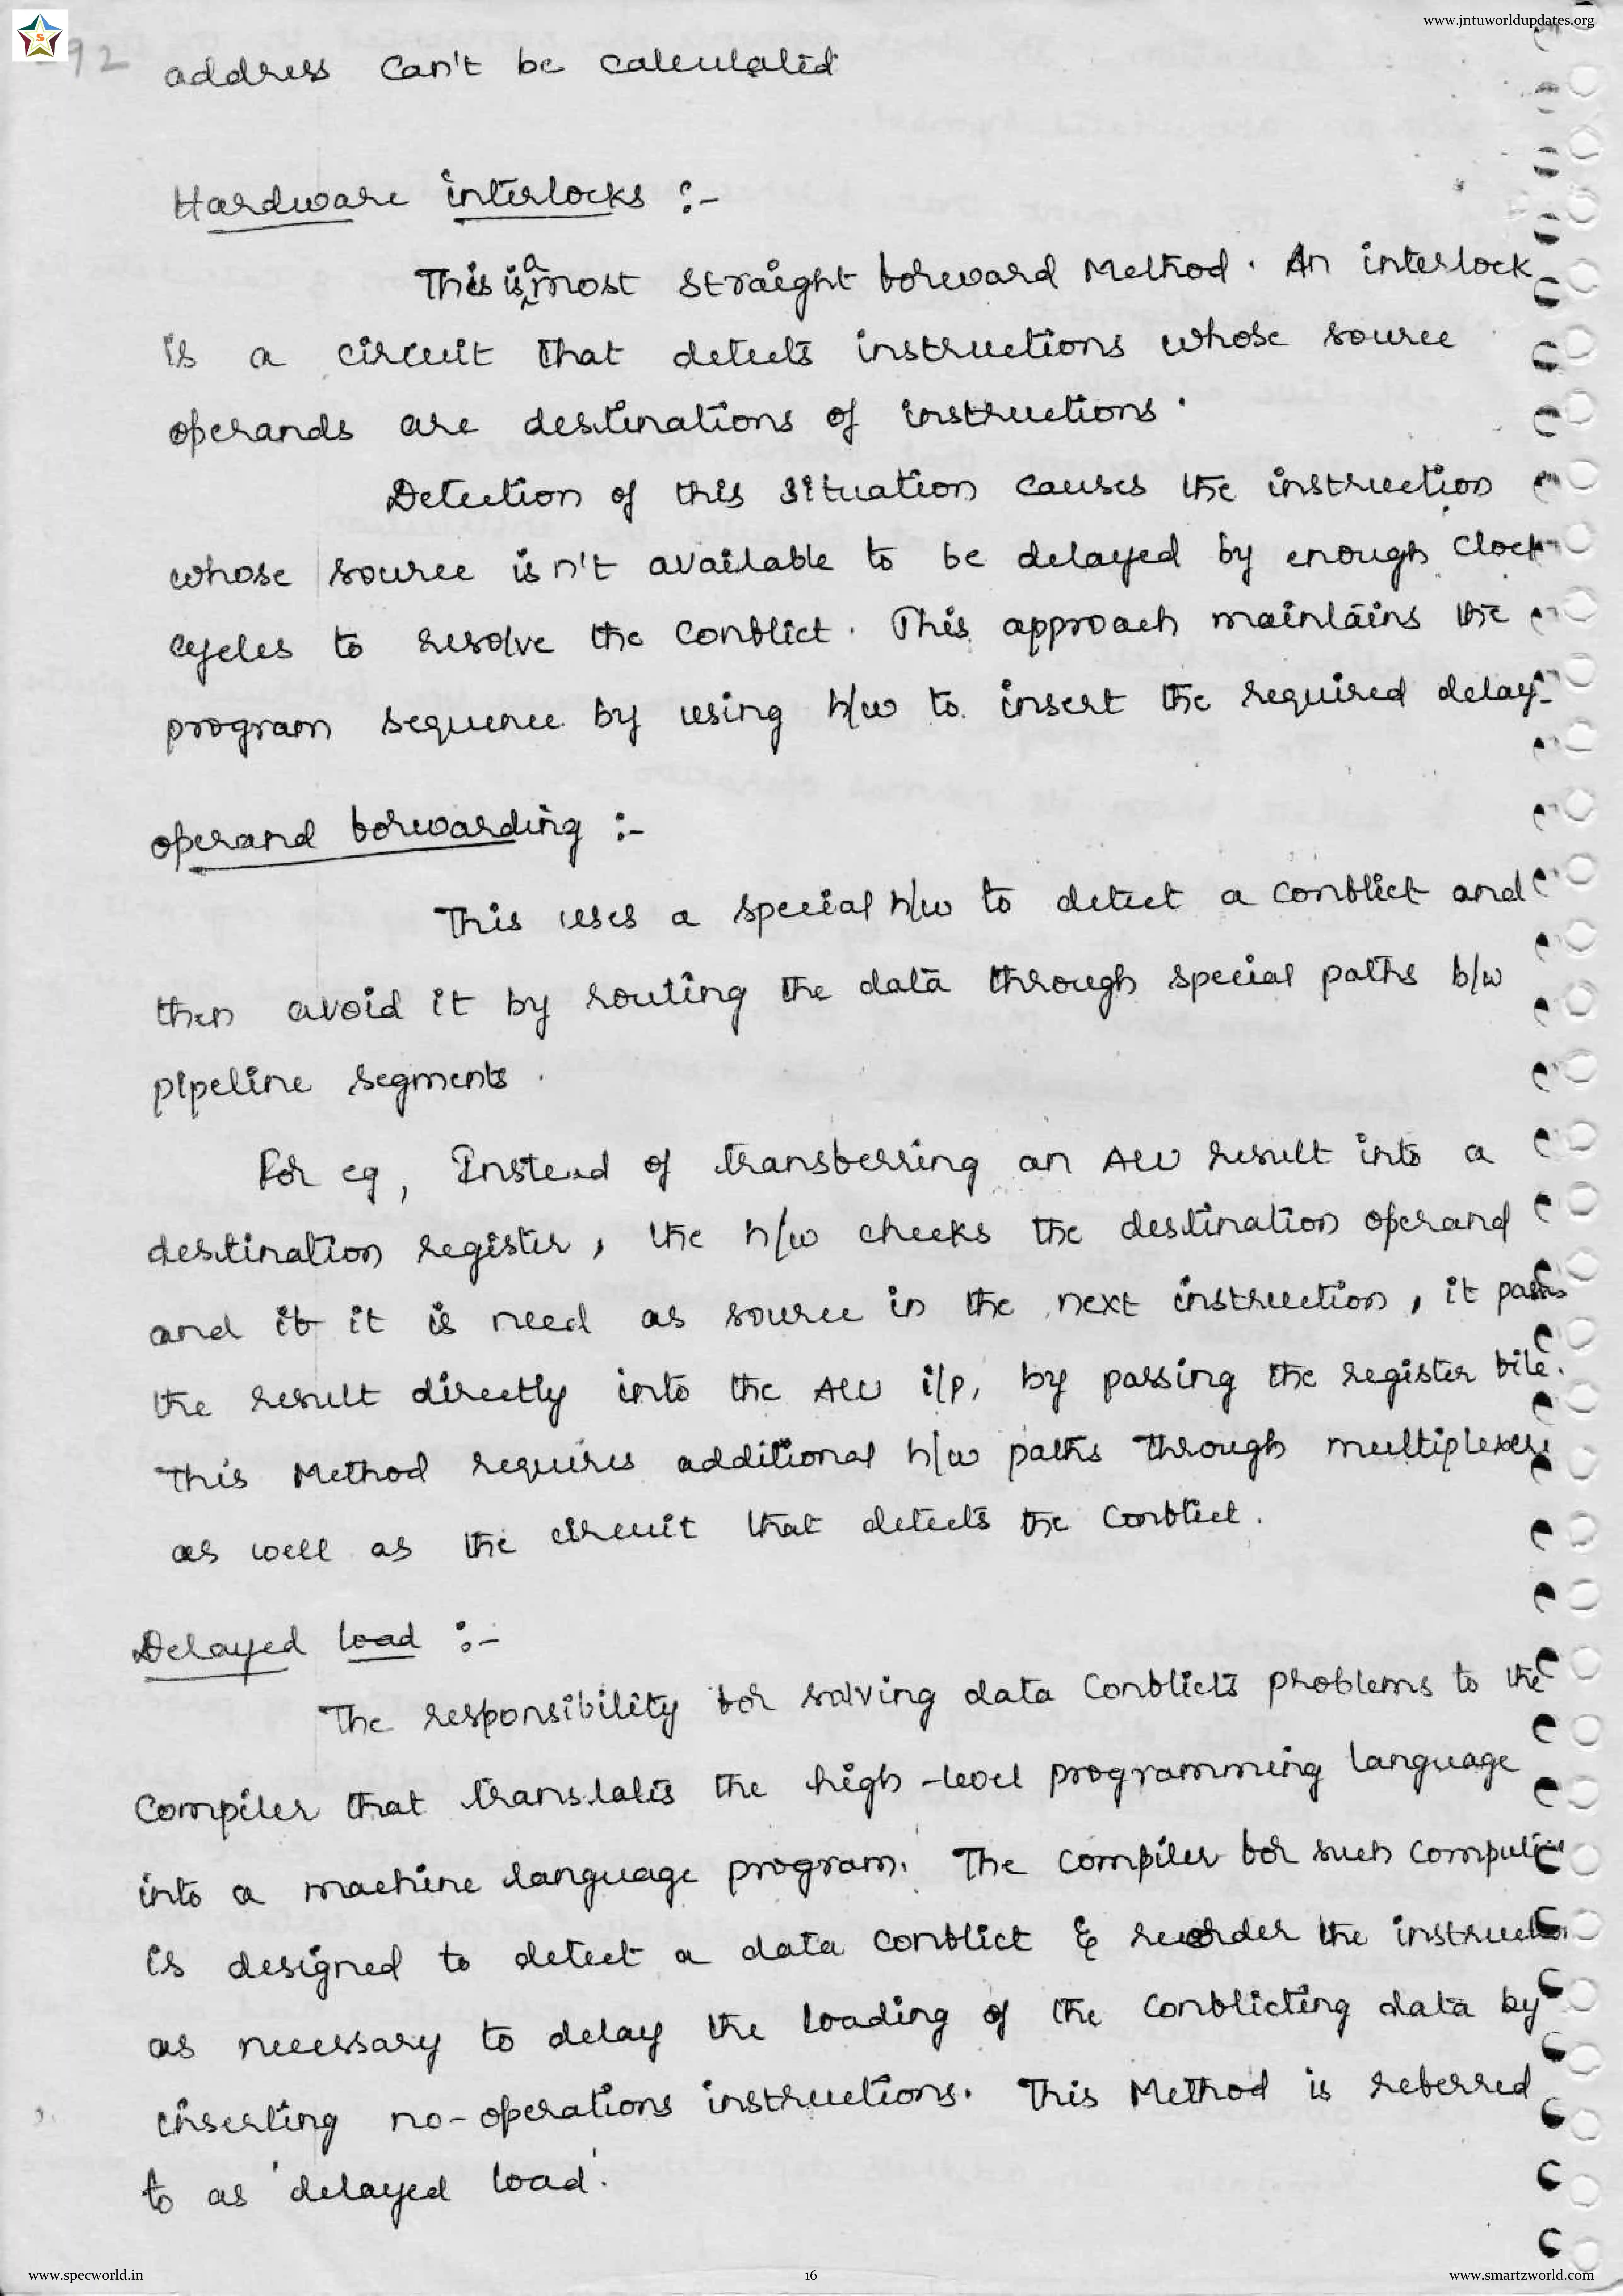 www.jntuworldupdates.org
S
92
address can't be calculated
Hardware interlocks :-
This is a most straight forward Method. An interlock
is a circuit that detects instructions whose source
operands are destinations of instructions.
Detection of this situation causes the instruction
whose source isn't available to be delayed by enough clock
cycles to resolve the conflict. This approach maintains the
program sequence by using h/w to insert the required delay.
operand forwarding :-
This uses a special h/w to detect a conflict and
then avoid it by routing the data through special paths b/w
pipeline segments.
For eg, Instead of transferring an ALU result into a
destination register, the h/w checks the destination operand
and if it is need as source in the next instruction, it pass
the result directly into the ALU i/p, by passing the register file.
This Method requires additional h/w paths through multiplexers
as well as the circuit that detects the conflict.
Delayed load :-
The responsibility for solving data conflicts problems to the
compiler that translates the high-level programming language
into a machine language program. The compiler for such
is designed to detect a data conflict & reorder the
as necessary to delay the loading of the conflicting data by
inserting no-operations instructions. This Method is referred
to as 'delayed load'.
www.specworld.in
16
www.smartzworld.com